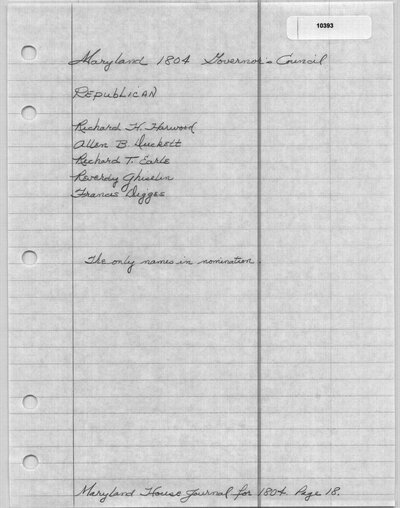 10393
Maryland 1804 Governor's Council
REPUBLICAN
Richard H. Harwood
Allen B. Duckett
Richard T. Earle
Reverdy Ghiselin
Francis Digges
The only names in nomination.
Maryland House Journal for 1804. Page 18.